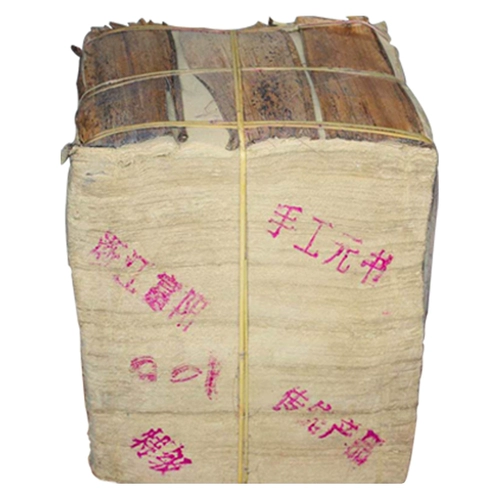 手工元书
浙江富阳
001
传统产品
特级